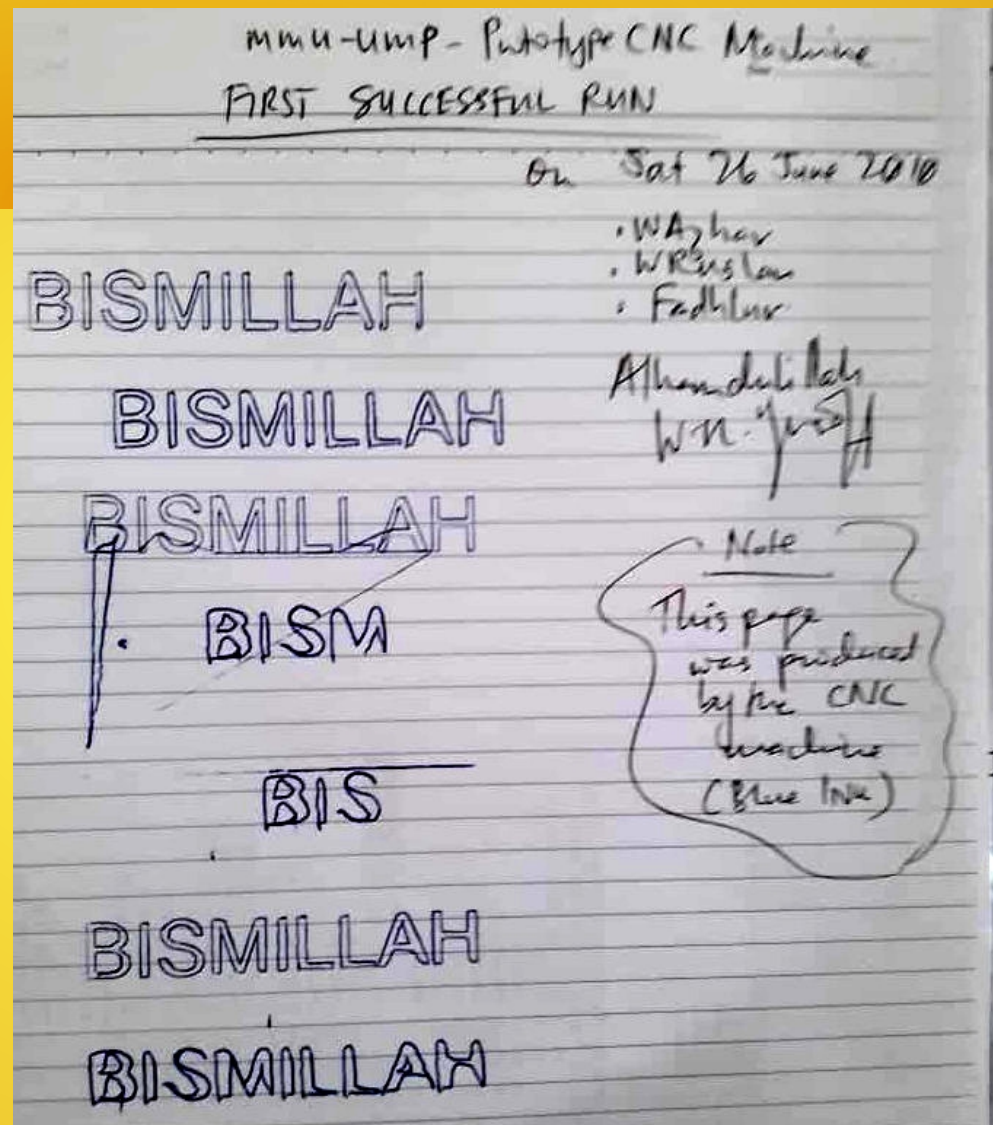 mmu-ump- Prototype CNC Machine
FIRST SUCCESSFUL RUN
On Sat 26 June 2010
• WAzhar
• WRuslan
• Fadhlur
Alhamdulillah
BISMILLAH
BISMILLAH
BISMILLAH
BISM
BIS
BISMILLAH
BISMILLAH
Note
This page
was produced
by the CNC
machine
(Blue INK)